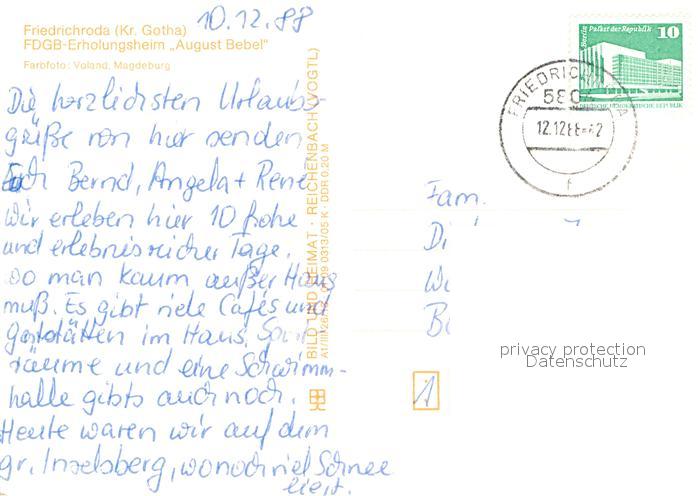 10.12.88
Friedrichroda (Kr. Gotha)
FDGB-Erholungsheim „August Bebel"
Farbfoto: Voland, Magdeburg
Die herzlichsten Urlaubs-
grüße von hier senden
Euch Bernd, Angela + René
Wir erleben hier 10 frohe
und erlebnisreicher Tage,
so man kaum außer Haus
muß. Es gibt viele Cafés und
Gaststätten im Haus, Sport-
räume und eine Schwimm-
halle gibts auch noch.
Heute waren wir auf dem
gr. Inselsberg, wo noch viel Schnee
liegt.
BILD UND HEIMAT · REICHENBACH (VOGTL)
DDR 0,20 M
Berlin Palast der Republik
10
DEUTSCHE DEMOKRATISCHE REPUBLIK
FRIEDRICH
580
12.12.88
f
Fam.
Di
Wi
privacy protection
Datenschutz